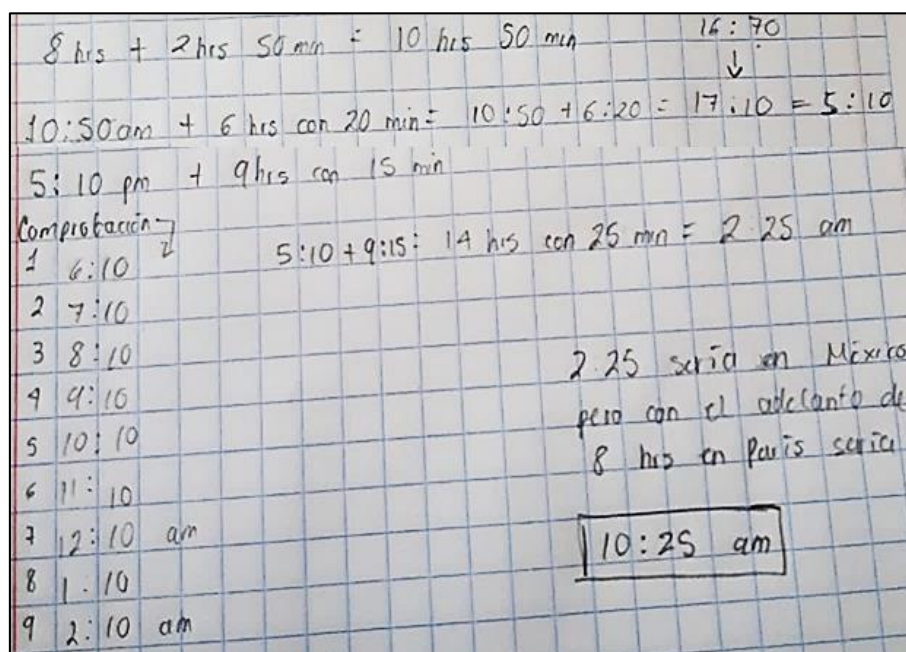 8 hrs + 2 hrs 50 min = 10 hrs 50 min
16:70
↓
10:50am + 6 hrs con 20 min = 10:50 + 6:20 = 17:10 = 5:10
5:10 pm + 9hrs con 15 min
Comprobación
5:10 + 9:15 = 14 hrs con 25 min = 2.25 am
1 6:10
2 7:10
3 8:10
4 9:10
5 10:10
6 11:10
7 12:10 am
8 1:10
9 2:10 am
2.25 seria en México
pero con el adelanto de
8 hrs en Paris seria
10:25 am